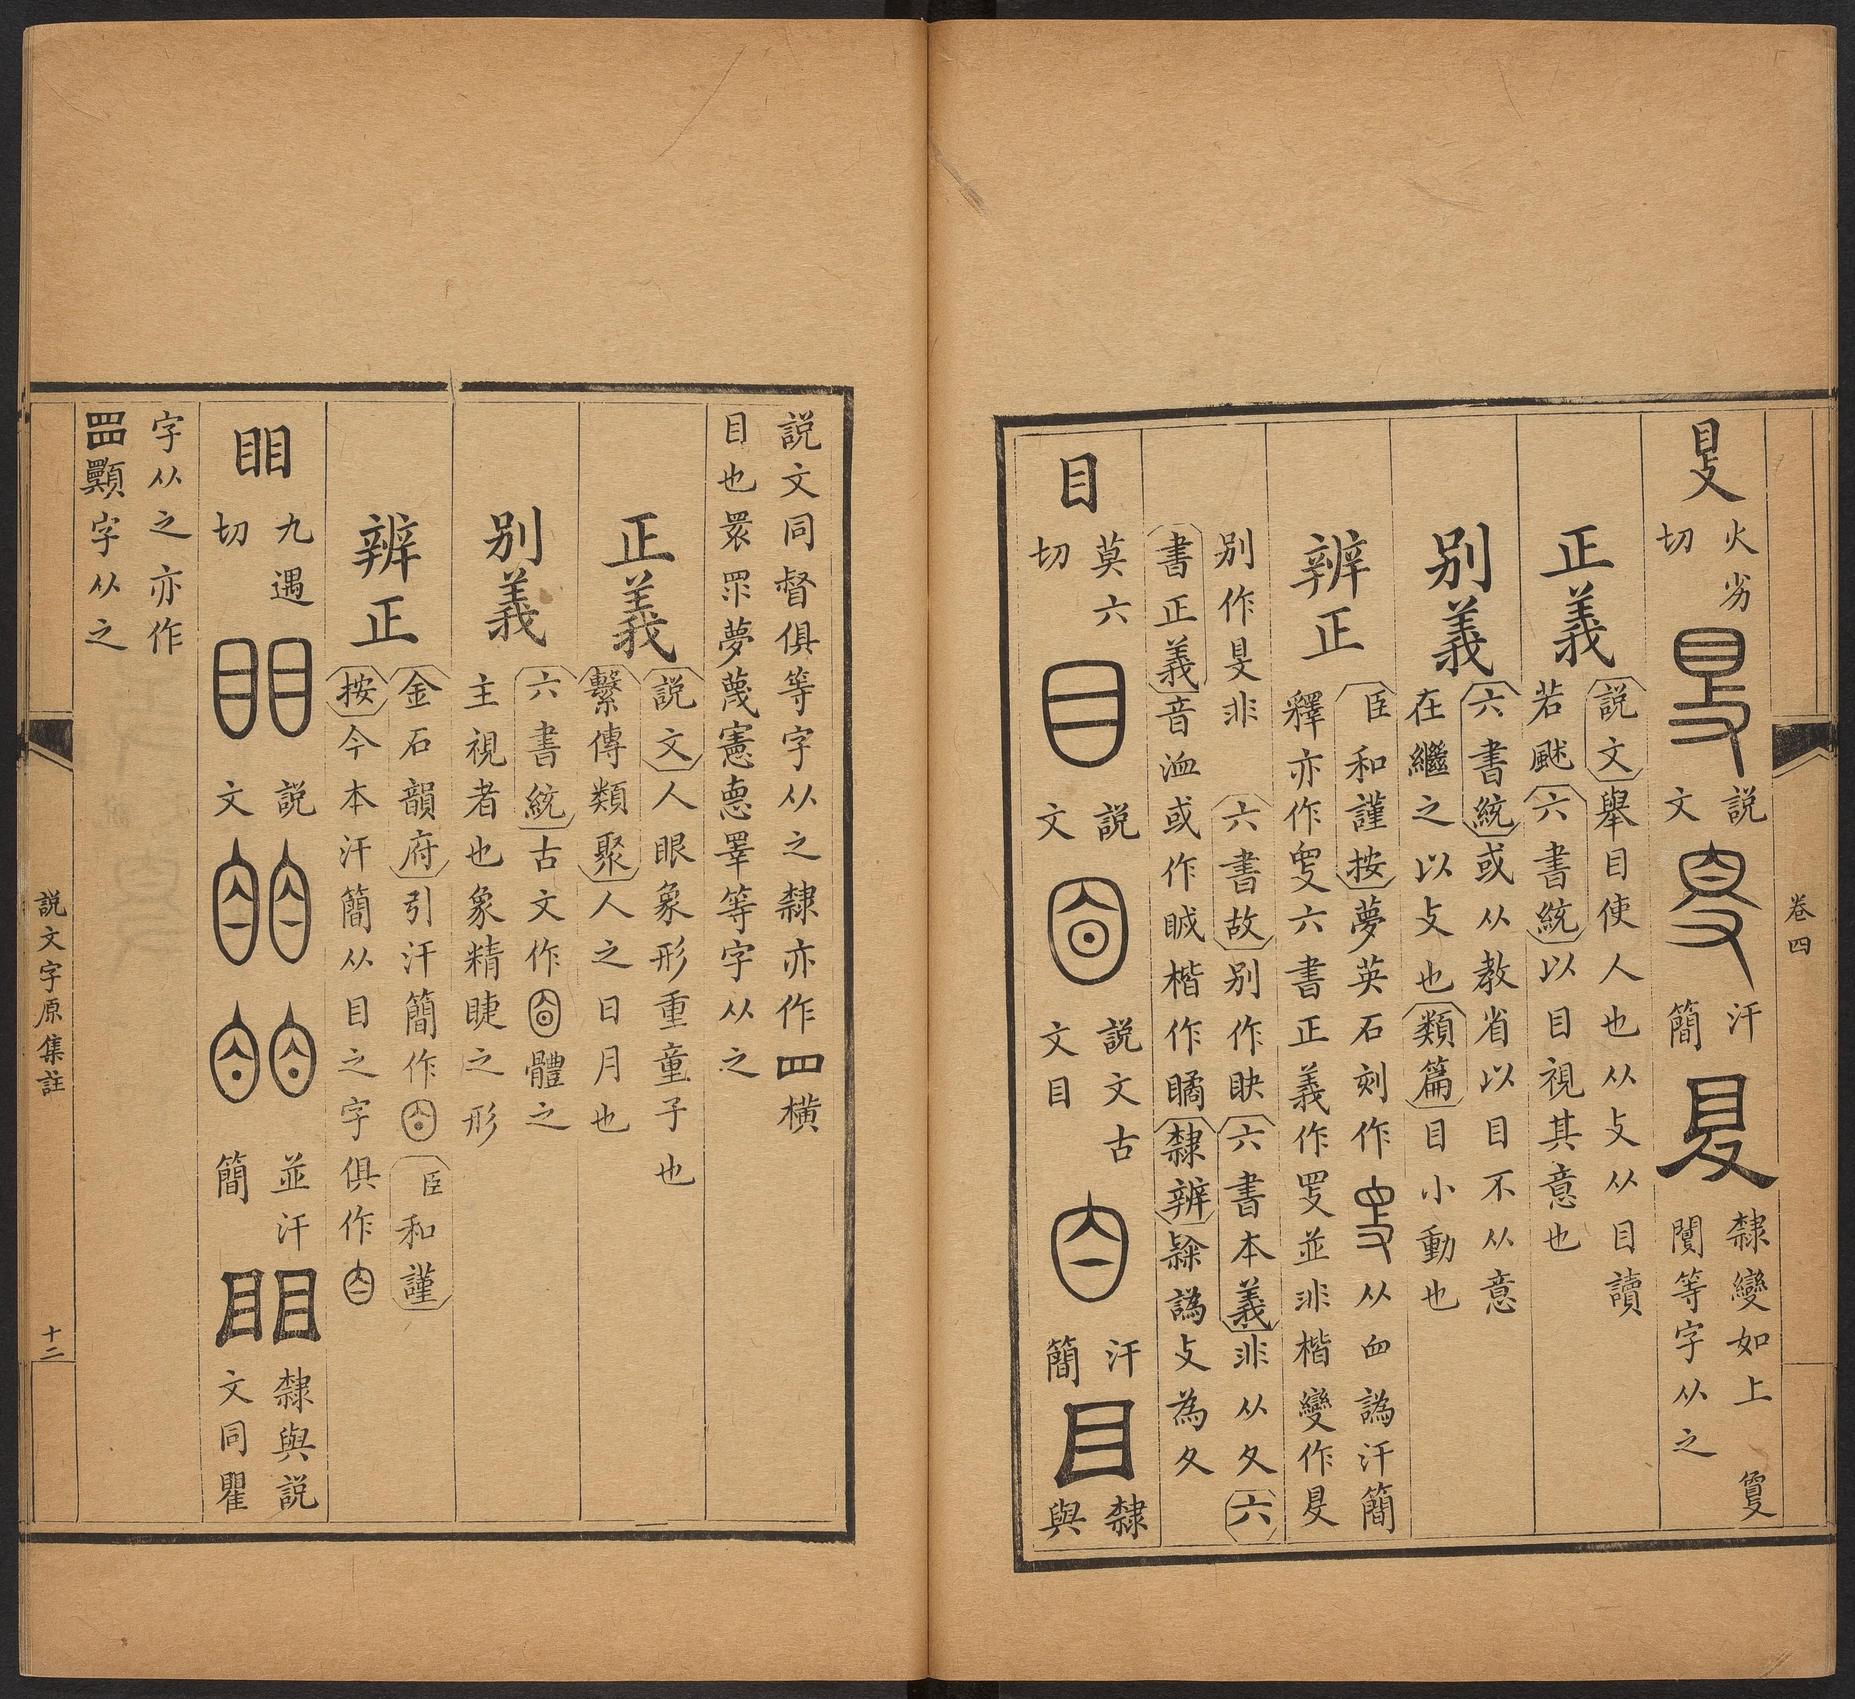 卷四
𡕥
火劣
切
説
文
汗
簡
隸變如上敻
闅等字从之
正義
説文舉目使人也从攴从目讀
若䬂六書統以目視其意也
别義
六書統或从教省以目不从意
在繼之以攴也類篇目小動也
辨正
臣和謹按夢英石刻作从血譌汗簡
釋亦作六書正義作並非楷變作
别作非六書故别作䀗六書本義非从夂六
書正義音洫或作䀳楷作𥍉隸辨譌攴為夂
目
莫六
切
説
文
説文古
文目
汗
簡
隸
與
説文同督俱等字从之隸亦作罒橫
目也眾罘夢蔑憲悳睪等字从之
正義
説文人眼象形重童子也
繫傳類聚人之日月也
别義
六書統古文作體之
主視者也象精睫之形
辨正
金石韻府引汗簡作臣和謹
按今本汗簡从目之字俱作
䀠
九遇
切
説
文
並汗
簡
隸與説
文同瞿
字从之亦作
顠字从之
説文字原集註
十二